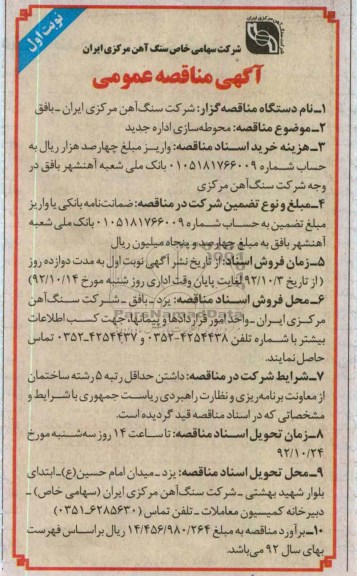 نوبت اول
شرکت سهامی خاص سنگ آهن مرکزی ایران
آگهی مناقصه عمومی
۱ـ نام دستگاه مناقصه‌گزار: شرکت سنگ آهن مرکزی ایران ـ بافق
۲ـ موضوع مناقصه: محوطه‌سازی اداره جدید
۳ـ هزینه خرید اسناد مناقصه: واریز مبلغ چهارصد هزار ریال به
حساب شماره ۰۱۰۵۱۸۱۷۶۶۰۰۹ بانک ملی شعبه آهنشهر بافق در
وجه شرکت سنگ آهن مرکزی
۴ـ مبلغ و نوع تضمین شرکت در مناقصه: ضمانت‌نامه بانکی یا واریز
مبلغ تضمین به حساب شماره ۰۱۰۵۱۸۱۷۶۶۰۰۹ بانک ملی شعبه
آهنشهر بافق به مبلغ چهارصد و پنجاه میلیون ریال
۵ـ زمان فروش اسناد: از تاریخ نشر آگهی نوبت اول به مدت دوازده روز
(از تاریخ ۹۲/۱۰/۳ لغایت پایان وقت اداری روز شنبه مورخ ۹۲/۱۰/۱۴)
۶ـ محل فروش اسناد مناقصه: یزد ـ بافق ـ شرکت سنگ آهن
مرکزی ایران ـ واحد امور قراردادها و پیمانها، جهت کسب اطلاعات
بیشتر با شماره تلفن ۴۲۵۴۴۳۸-۰۳۵۲ و ۴۲۵۴۴۳۷-۰۳۵۲ تماس
حاصل نمایند.
۷ـ شرایط شرکت در مناقصه: داشتن حداقل رتبه ۵ رشته ساختمان
از معاونت برنامه‌ریزی و نظارت راهبردی ریاست جمهوری با شرایط و
مشخصاتی که در اسناد مناقصه قید گردیده است.
۸ـ زمان تحویل اسناد مناقصه: تا ساعت ۱۴ روز سه‌شنبه مورخ
۹۲/۱۰/۲۴
۹ـ محل تحویل اسناد مناقصه: یزد ـ میدان امام حسین(ع)ـ ابتدای
بلوار شهید بهشتی ـ شرکت سنگ آهن مرکزی ایران (سهامی خاص) ـ
دبیرخانه کمیسیون معاملات ـ تلفن تماس (۶۲۸۵۶۳۰-۰۳۵۱)
۱۰ـ برآورد مناقصه به مبلغ ۱۴/۴۵۶/۹۸۰/۲۶۴ ریال براساس فهرست
بهای سال ۹۲ می‌باشد.